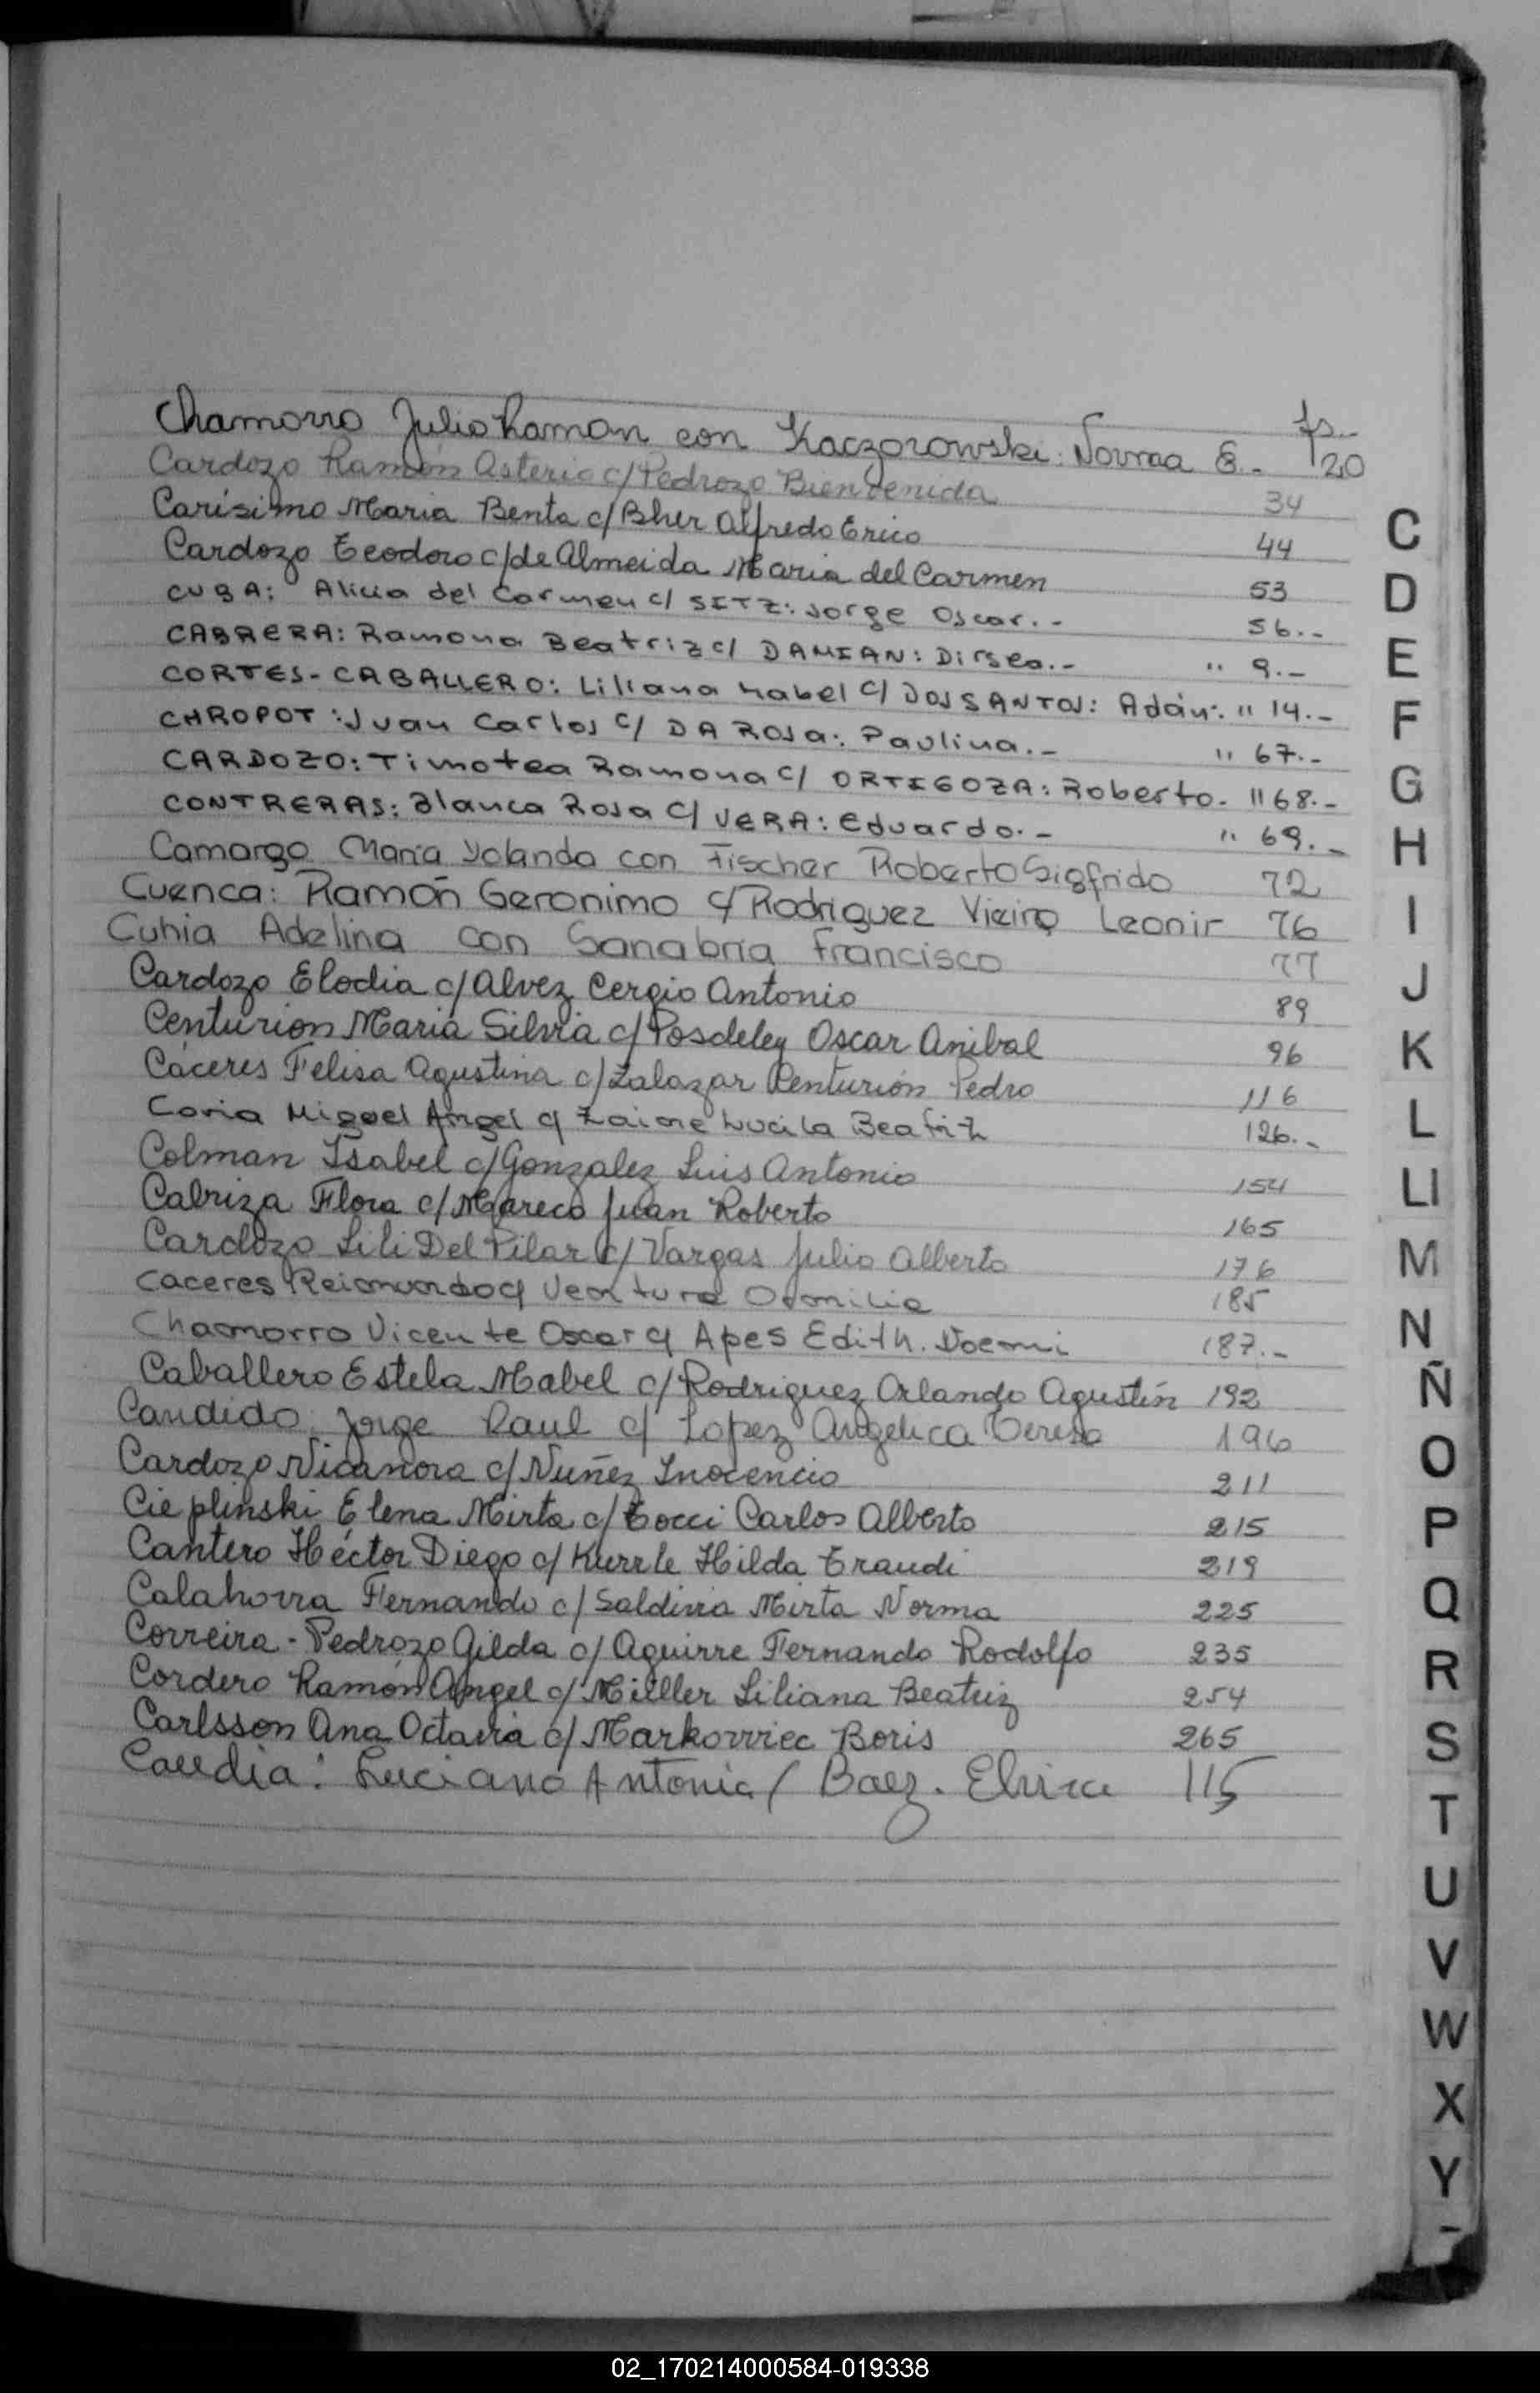 fs..
Chamorro Julio Ramon con Kaczorowski: Norma E.- 20
Cardozo Ramón Asterio c/Pedrozo Bienvenida 34
Carísimo Maria Benta c/Bher Alfredo Erico 44
Cardozo Teodoro c/de Almeida Maria del Carmen 53
CUBA: Alicia del Carmen c/ SEITZ: Jorge Oscar.- 56.-
CABRERA: Ramona Beatriz c/ DAMIAN: Dirseo.- " 9.-
CORTES-CABALLERO: Liliana Mabel c/ DOS SANTOS: Adán: " 14.-
CHROPOT: Juan Carlos c/ DA ROSA: Paulina.- " 67.-
CARDOZO: Timotea Ramona c/ ORTIGOZA: Roberto. " 68.-
CONTRERAS: Blanca Rosa c/ VERA: Eduardo.- " 69.-
Camargo Maria Yolanda con Fischer Roberto Sigfrido 72
Cuenca: Ramón Geronimo c/ Rodriguez Vieira Leonir 76
Cuhia Adelina con Sanabria Francisco 77
Cardozo Elodia c/Alvez Cergio Antonio 89
Centurion Maria Silvia c/Posdeley Oscar Anibal 96
Cáceres Felisa Agustina c/Zalazar Centurión Pedro 116
Coria Miguel Angel c/ Lucila Beatriz 126.-
Colman Isabel c/Gonzalez Luis Antonio 154
Cabriza Flora c/Mareco Juan Roberto 165
Cardozo Lili Del Pilar c/Vargas Julio Alberto 176
Caceres Reimundo c/ Ventura Odonilia 185
Chamorro Vicente Oscar c/ Apes Edith. Noemi 187.-
Caballero Estela Mabel c/Rodriguez Orlando Agustín 192
Candido Jorge Raul c/ Lopez Angelica Teresa 196
Cardozo Nicanora c/Nuñez Inocencio 211
Cieplinski Elena Mirta c/Tocci Carlos Alberto 215
Cantero Héctor Diego c/Kurrle Hilda Traudi 219
Calahorra Fernando c/Saldivia Mirta Norma 225
Correira-Pedrozo Gilda c/Aguirre Fernando Rodolfo 235
Cordero Ramón Angel c/Miller Liliana Beatriz 254
Carlsson Ana Octavia c/Markowiec Boris 265
Caudia: Luciano Antonio/ Baez. Elvira 115
C
D
E
F
G
H
I
J
K
L
Ll
M
N
Ñ
O
P
Q
R
S
T
U
V
W
X
Y
02_170214000584-019338